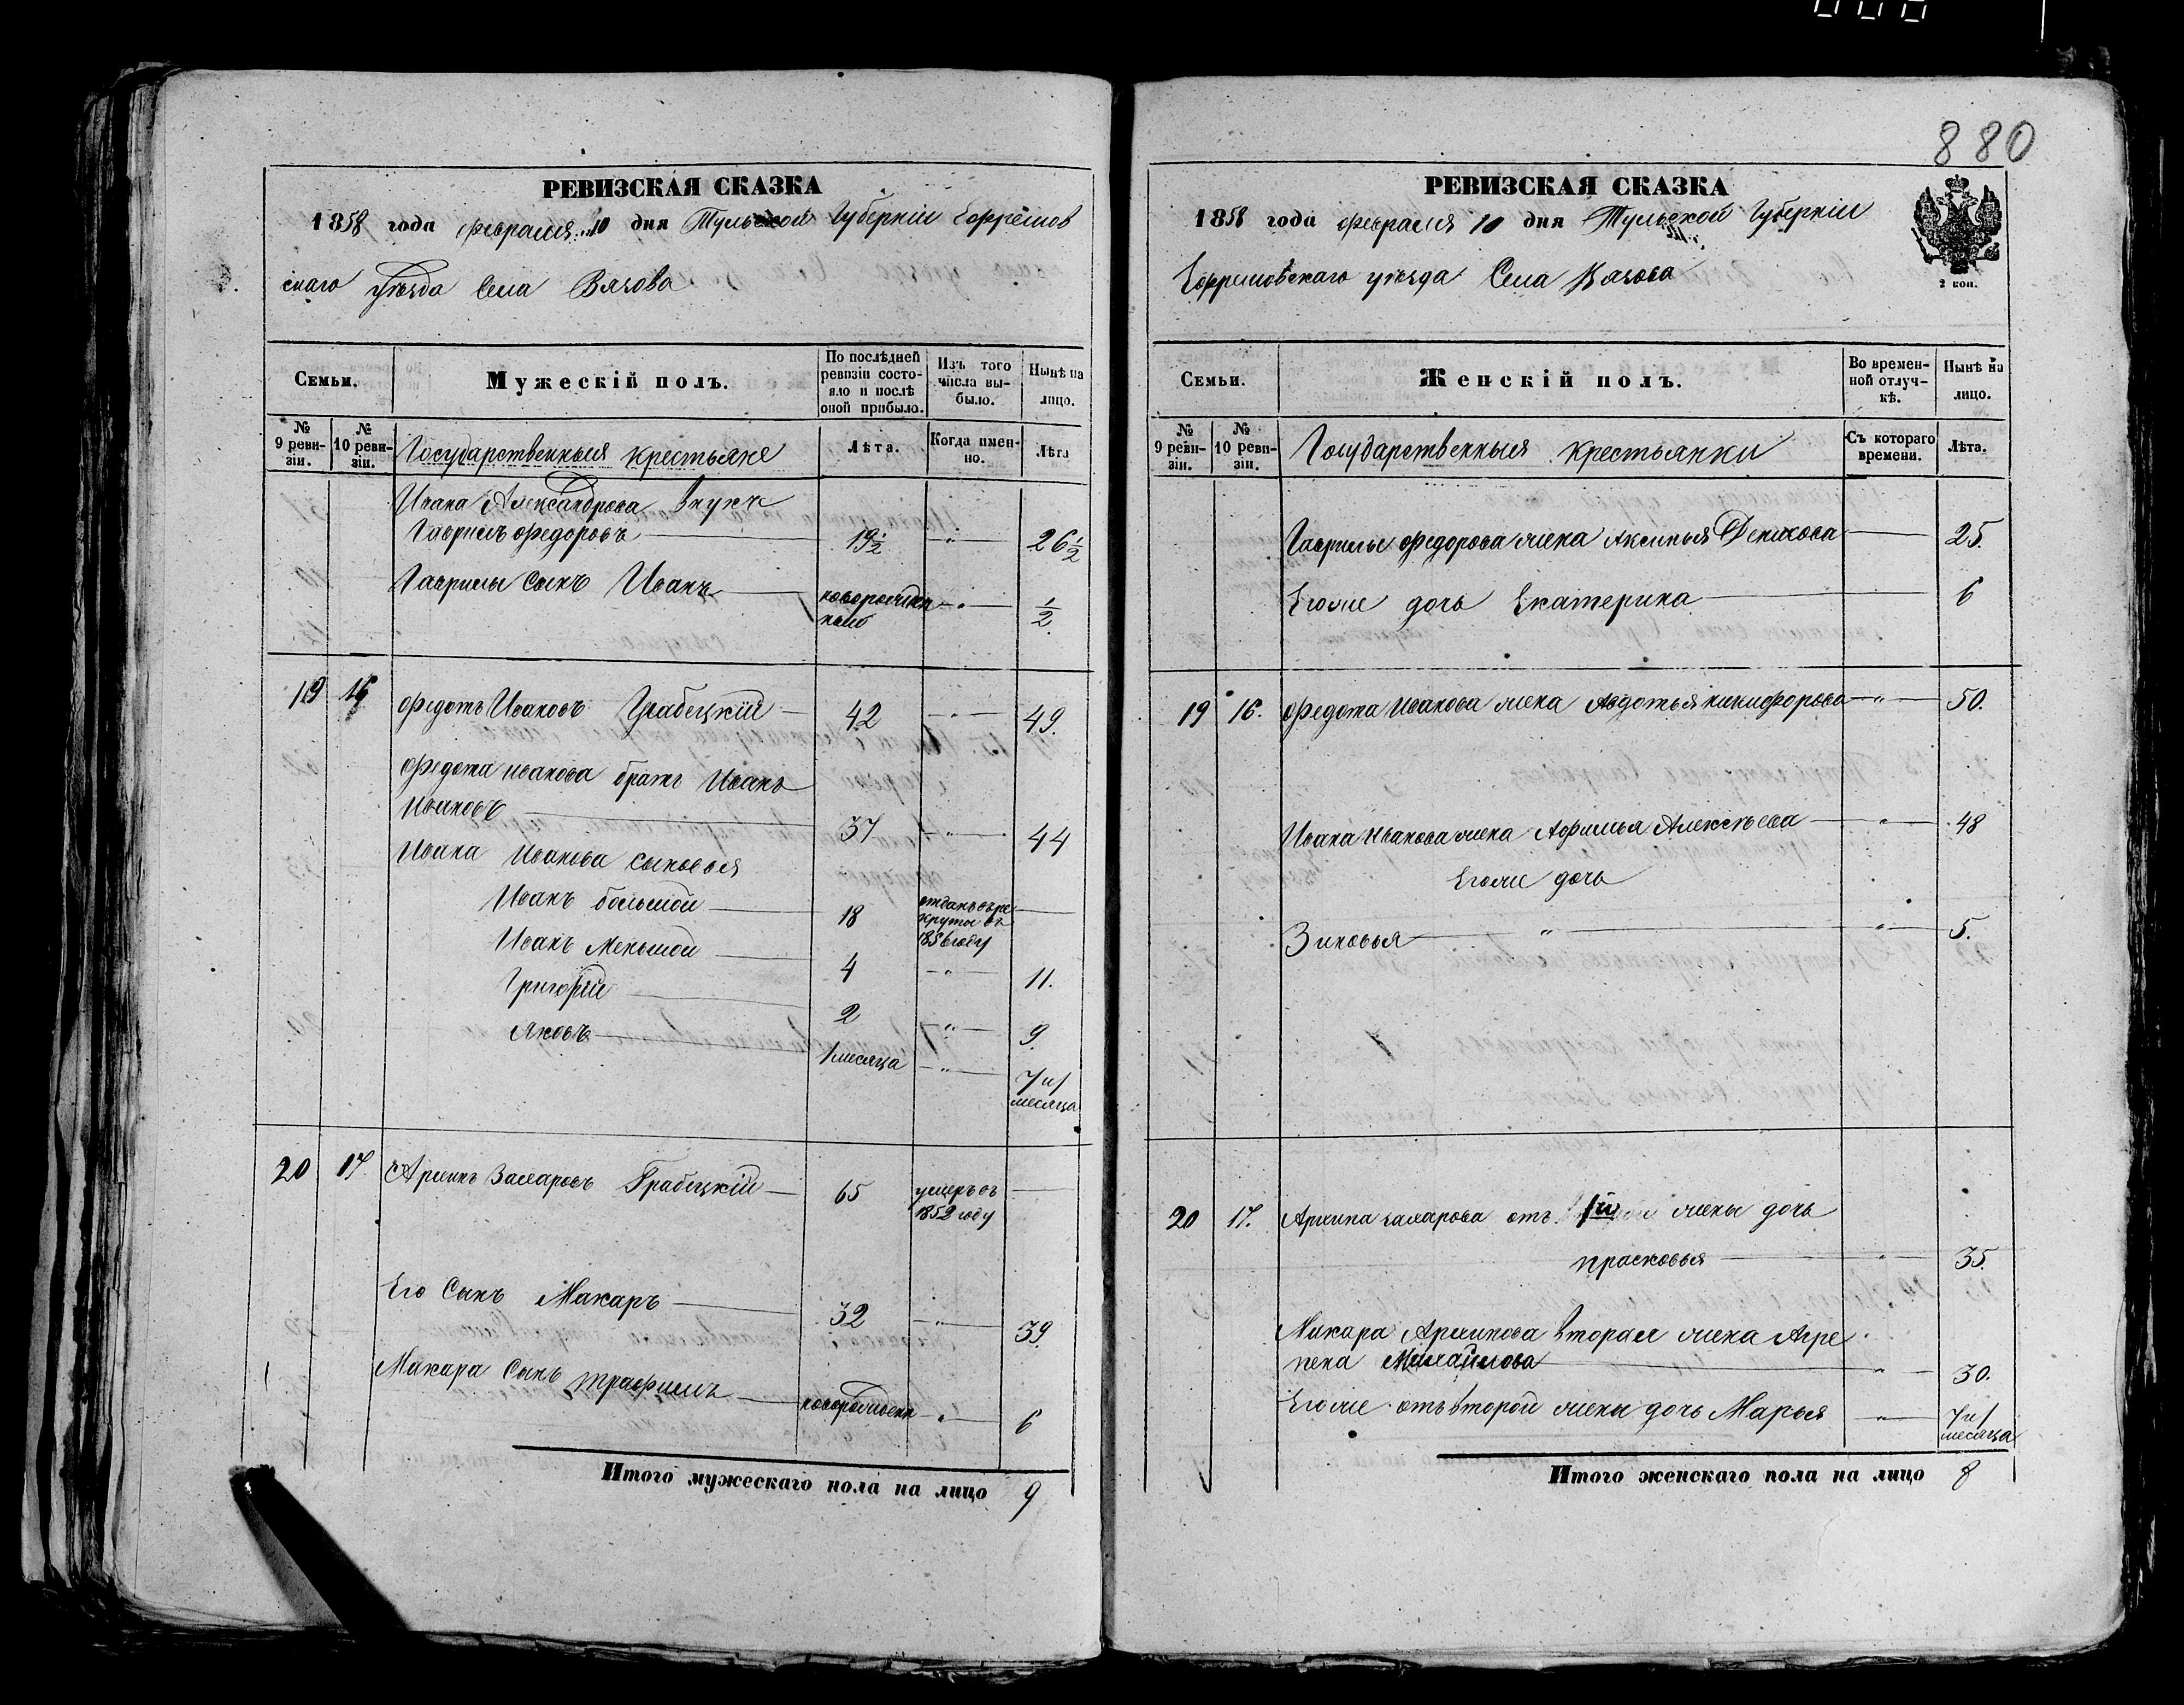 880
РЕВИЗСКАЯ СКАЗКА
1858 года февраля 10 дня Тульской Губерніи Ефремов
скаго уѣзда Села Вязова
Семьи.
Мужескій полъ.
По послѣдней ревизіи состояло и послѣ оной прибыло.
Изъ того числа выбыло.
Нынѣ на лицо.
№ 9 ревизіи.
№ 10 ревизіи.
Государственныя крестьяне
Лѣта.
Когда именно.
Лѣта
Ивана Александрова внукъ
Гаврилъ Федоровъ 19½ " 26½
Гаврилы сынъ Иванъ новорожденный " ½
19 16 Федотъ Ивановъ Грабецкій 42 " 49.
Федота Иванова братъ Иванъ
Ивановъ 37 " 44
Ивана Иванова сыновья
Иванъ большой 18 отданъ въ рекруты въ 1856 году
Иванъ меньшой 4 " 11.
Григорій 2 " 9.
Яковъ 1 месяца " 7 и 1 месяца
20 17. Архипъ Захаровъ Грабецкій 65 умеръ въ 1852 году
Его сынъ Макаръ 32 " 39.
Макара сынъ Трафимъ новорожден " 6
Итого мужескаго пола на лицо 9
РЕВИЗСКАЯ СКАЗКА
1858 года февраля 10 дня Тульской Губерніи
Ефремовскаго уѣзда Села Вязова
2 коп.
Семьи.
Женскій полъ.
Во временной отлучкѣ.
Нынѣ на лицо.
№ 9 ревизіи.
№ 10 ревизіи.
Государственныя крестьянки
Съ котораго времени.
Лѣта.
Гаврилы Федорова жена Аксинья Денисова 25.
Егоже дочь Екатерина 6
19 16. Федота Иванова жена Авдотья Никифорова " 50.
Ивана Иванова жена Афимья Алексѣева " 48
Егоже дочь
Зиновья " " 5.
20 17. Архипа Захарова отъ 1й жены дочь
Прасковья " 35.
Макара Архипова вторая жена Агре
пена Михайлова " 30.
Егоже отъ второй жены дочь Марья " 7 и 1 месяца
Итого женскаго пола на лицо 8